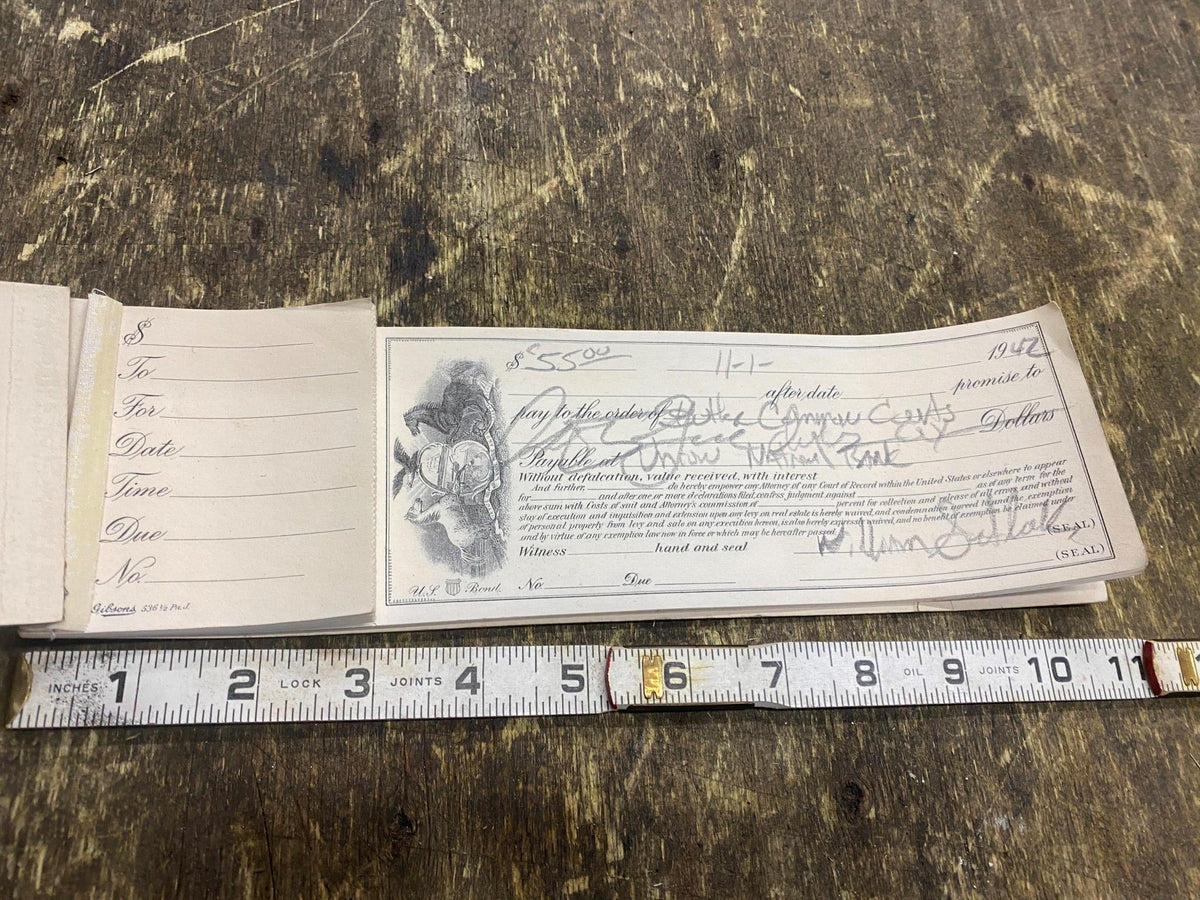 $
To
For
Date
Time
Due
No.
Gibsons 536½ Pa. J.
$ 55 00 11-1- 1942
after date promise to
pay to the order of
Dollars
Payable at Union National Bank
Without defalcation, value received, with interest
And further, do hereby empower any Attorney of any Court of Record within the United States or elsewhere to appear
for and after one or more declarations filed, confess judgment against as of any term for the
above sum with Costs of suit and Attorney's commission of percent for collection and release of all errors, and without
stay of execution and inquisition and extension upon any levy on real estate is hereby waived, and condemnation agreed to and the exemption
of personal property from levy and sale on any execution hereon, is also hereby expressly waived, and no benefit of exemption be claimed under
and by virtue of any exemption law now in force or which may be hereafter passed.
Witness hand and seal William (SEAL)
(SEAL)
U.S. Bond. No Due
INCHES 1 2 LOCK 3 JOINTS 4 5 6 7 8 OIL 9 JOINTS 10 11